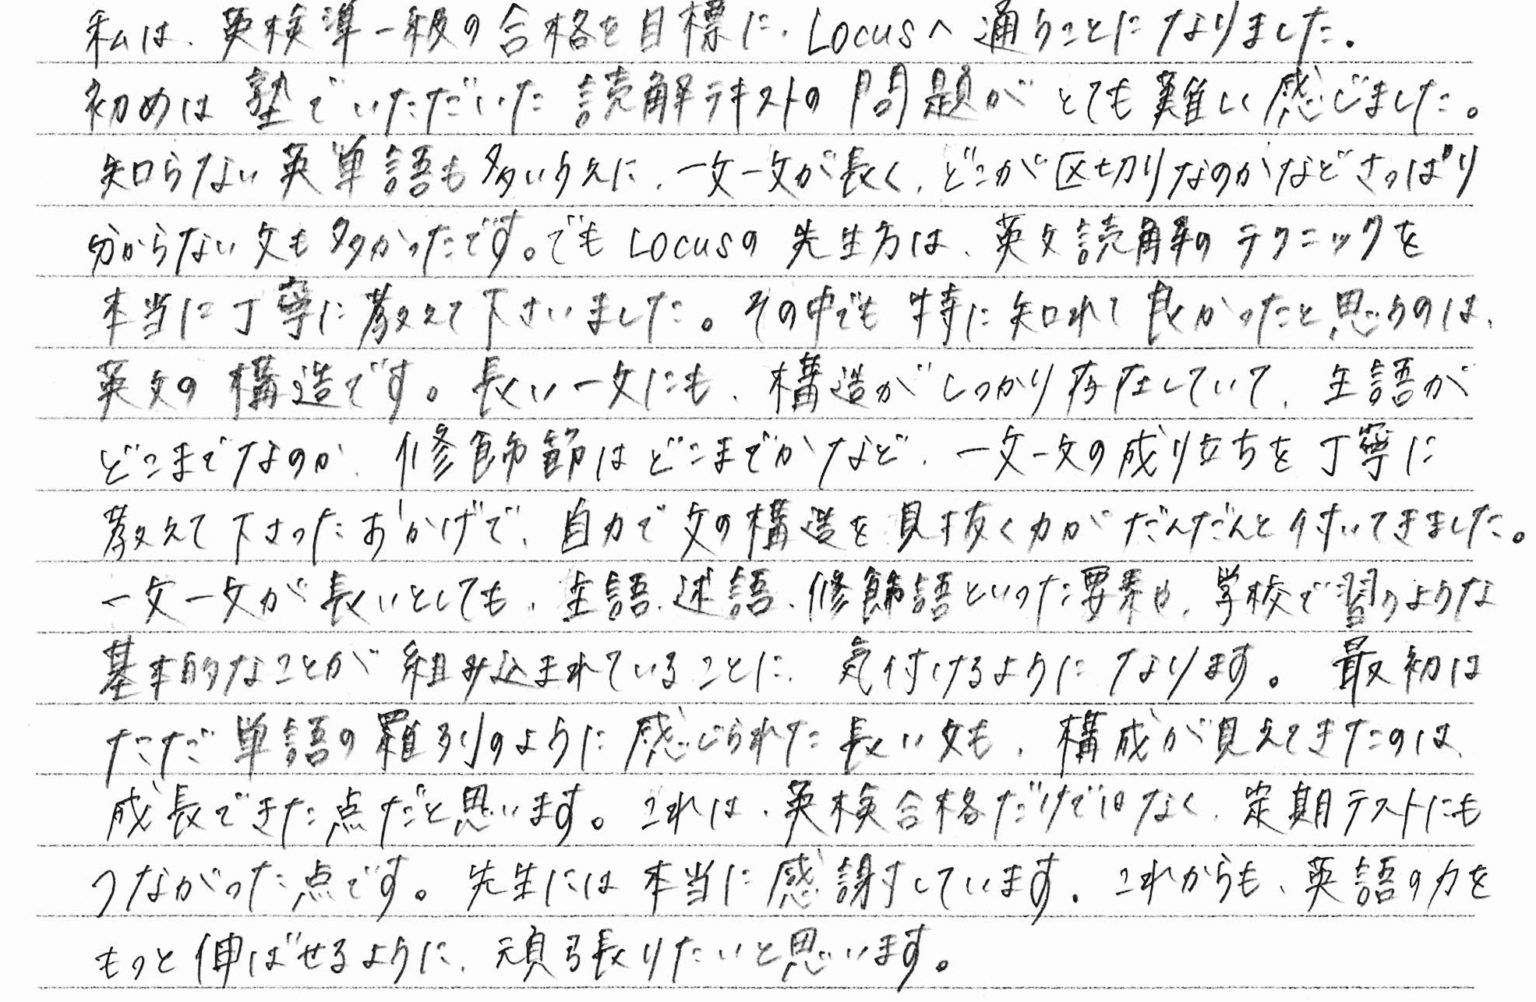 私は、英検準一級の合格を目標に、Locusへ通うことになりました。
初めは塾でいただいた読解テキストの問題がとても難しく感じました。
知らない英単語も多いうえに、一文一文が長く、どこが区切りなのかなどさっぱり
分からない文も多かったです。でもLocusの先生方は、英文読解のテクニックを
本当に丁寧に教えて下さいました。その中でも特に知れて良かったと思うのは、
英文の構造です。長い一文にも、構造がしっかり存在していて、主語が
どこまでなのか、修飾節はどこまでかなど、一文一文の成り立ちを丁寧に
教えて下さったおかげで、自力で文の構造を見抜く力がだんだんと付いてきました。
一文一文が長いとしても、主語、述語、修飾語といった要素や、学校で習うような
基本的なことが組み込まれていることに、気付けるようになります。最初は
ただ単語の羅列のように感じられた長い文も、構成が見えてきたのは、
成長できた点だと思います。これは、英検合格だけではなく、定期テストにも
つながった点です。先生には本当に感謝しています。これからも、英語の力を
もっと伸ばせるように、頑張りたいと思います。